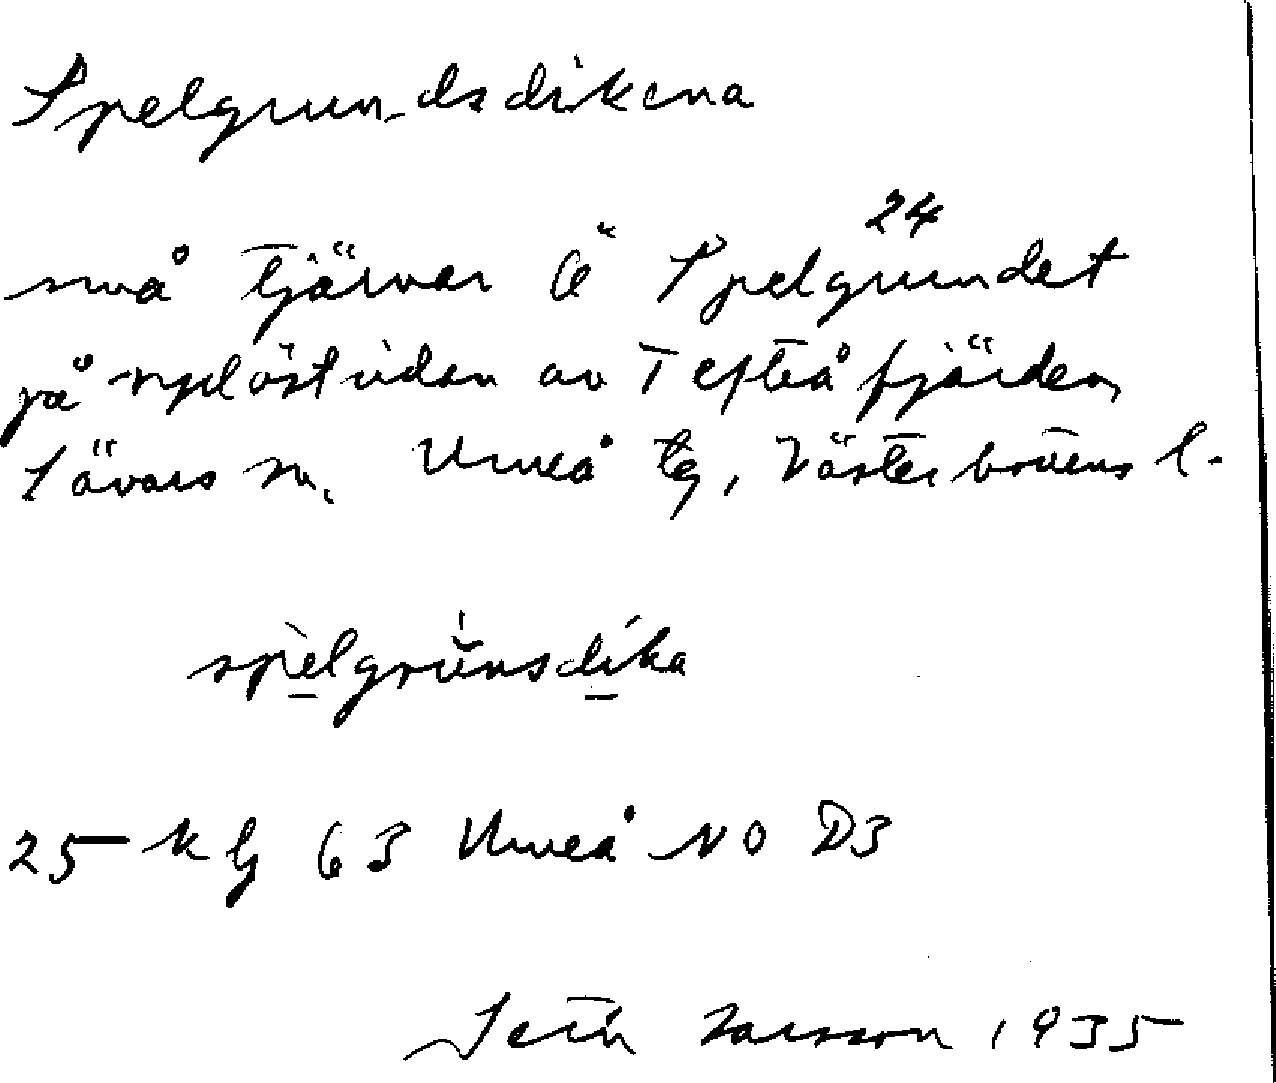 Spelgrundsdikena
24
små tjärnar å Spelgrundet
på sydöstsidan av Tefteåfjärden
Sävars sn. Umeå tg, Västerbottens l.
spelgrŭnsdika
25 klg 63 Umeå NO D3
Seth Larsson 1935